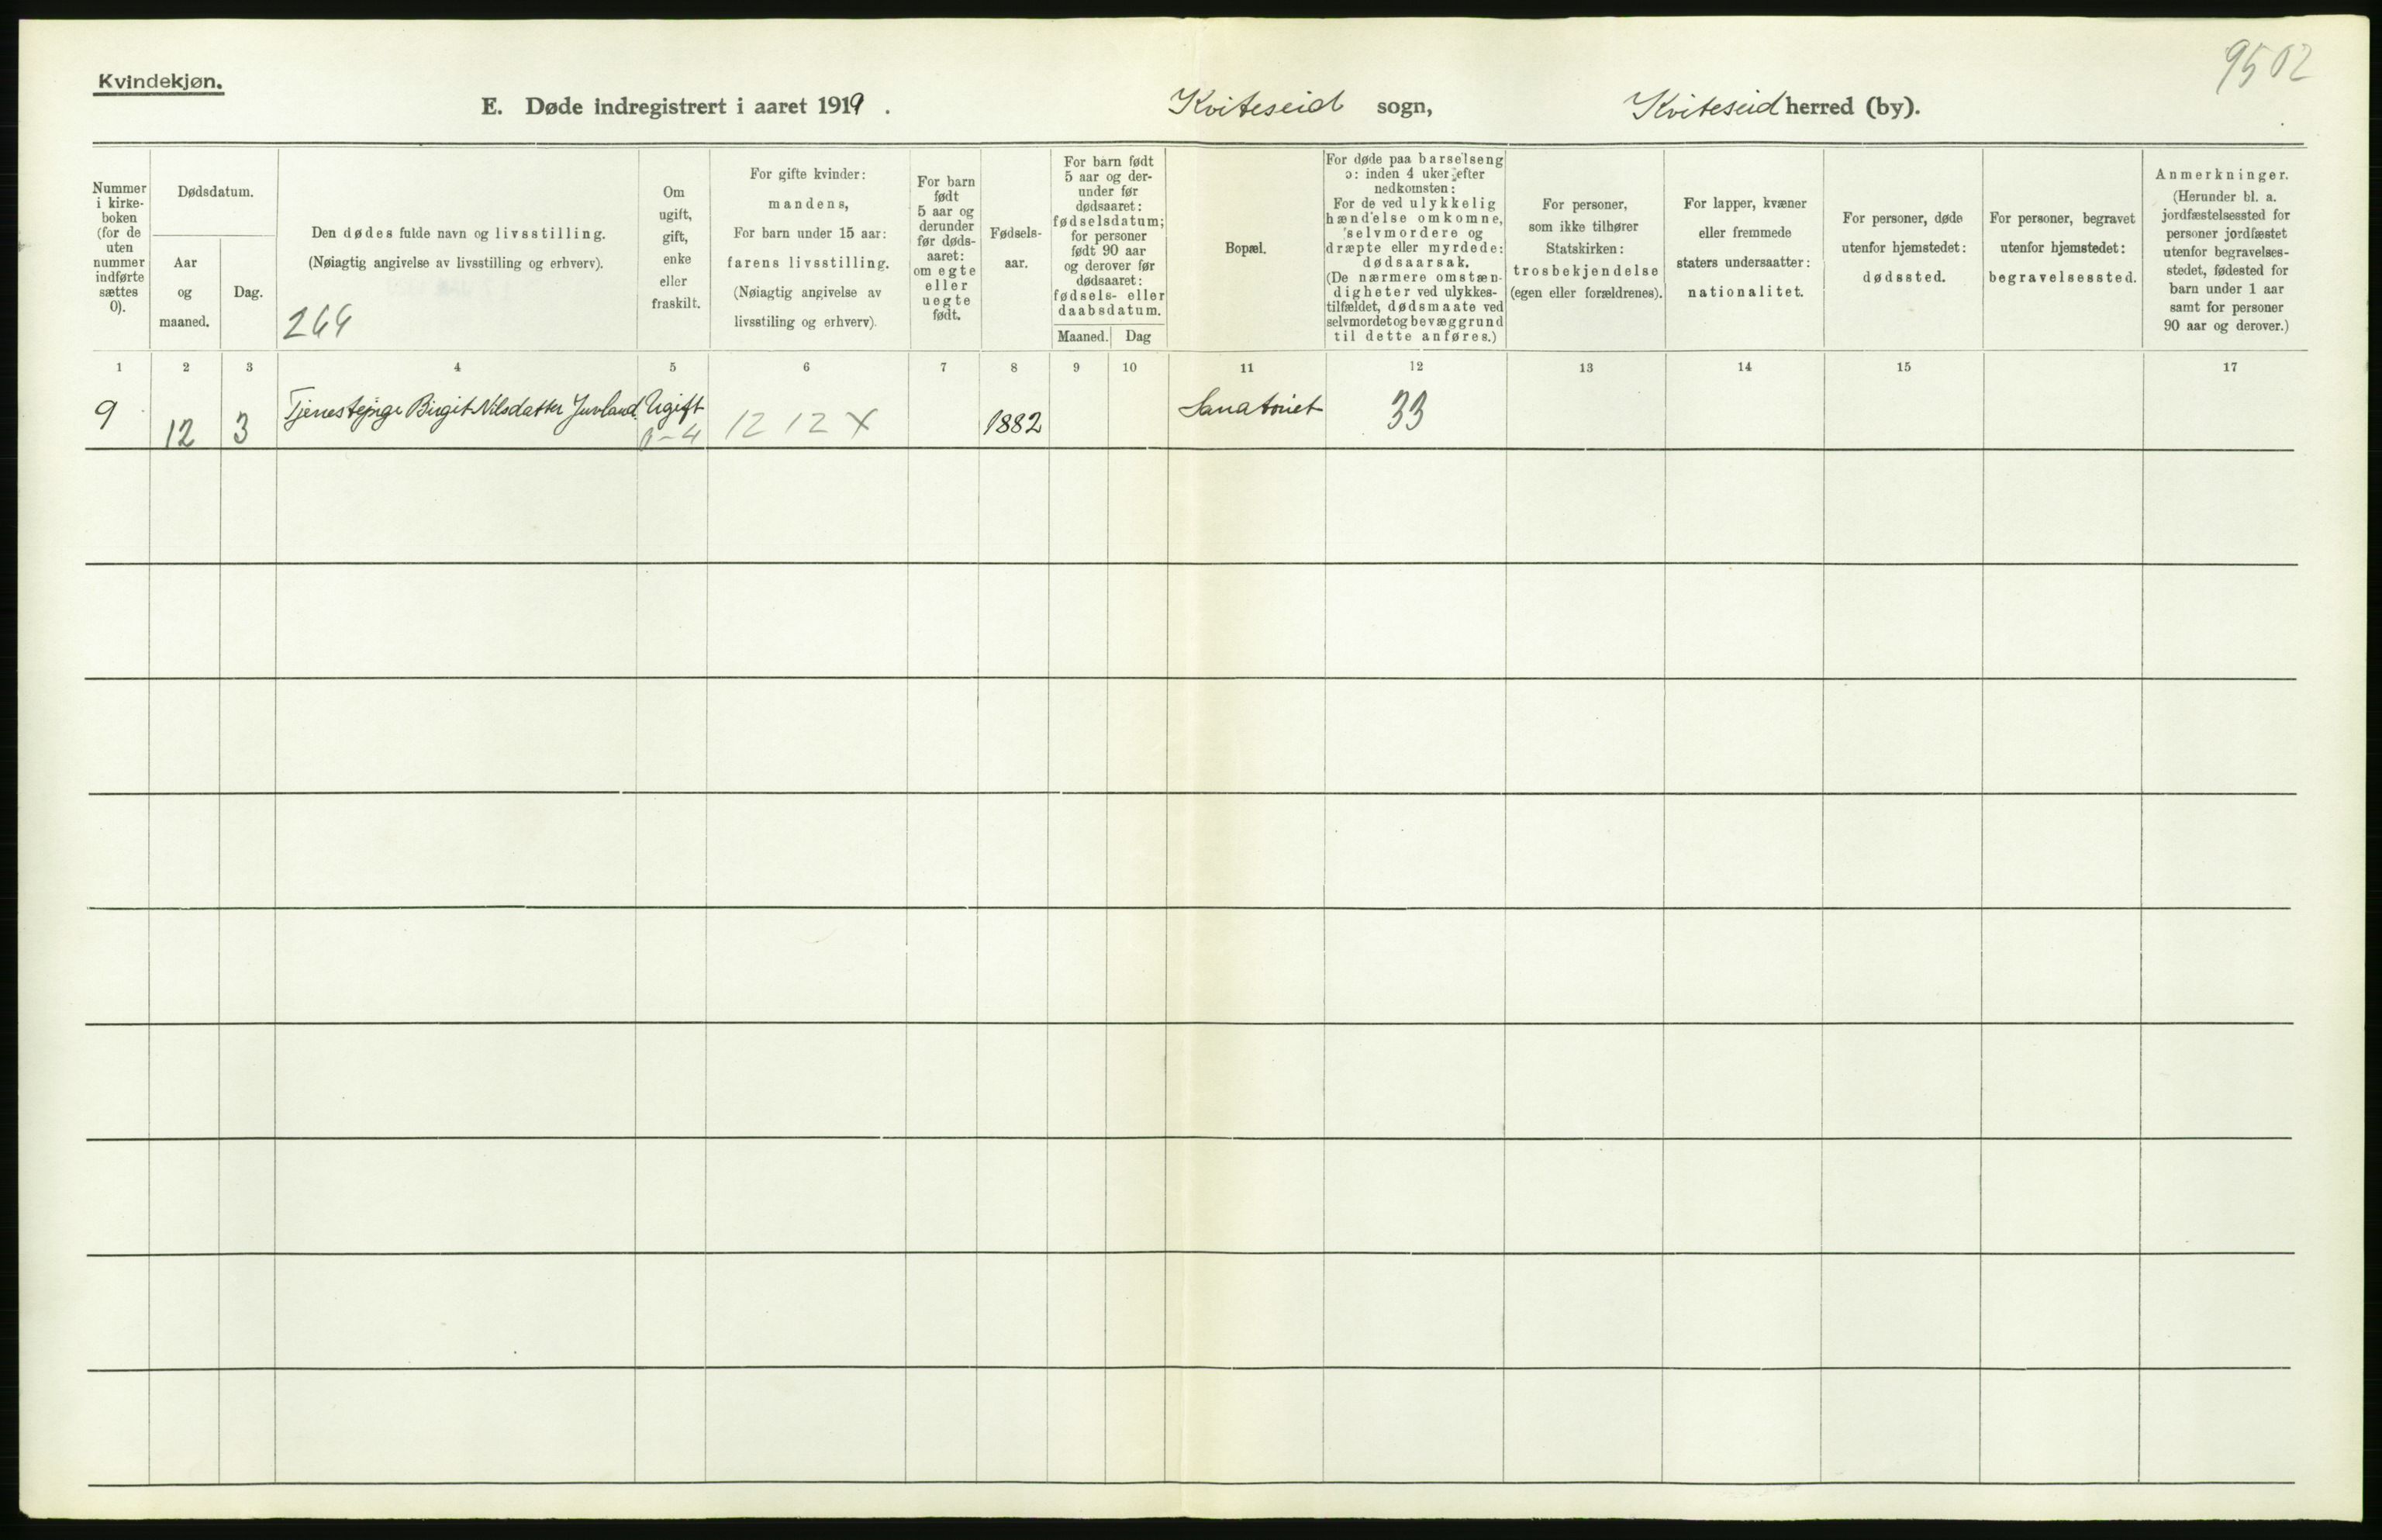 9502
Kvindekjøn.
E. Døde indregistrert i aaret 1919.
Kviteseid sogn,
Kviteseid herred (by).
Nummer
i kirke-
boken
(for de
uten
nummer
indførte
sættes
0).
Dødsdatum.
Aar
og
maaned.
Dag.
Den dødes fulde navn og livsstilling.
(Nøiagtig angivelse av livsstilling og erhverv).
264
Om
ugift,
gift,
enke
eller
fraskilt.
For gifte kvinder:
mandens,
For barn under 15 aar:
farens livsstilling.
(Nøiagtig angivelse av
livsstiling og erhverv).
For barn
født
5 aar og
derunder
før døds-
aaret:
om egte
eller
uegte
født.
Fødsels-
aar.
For barn født
5 aar og der-
under før
dødsaaret:
fødselsdatum;
for personer
født 90 aar
og derover før
dødsaaret:
fødsels- eller
daabsdatum.
Maaned. Dag
Bopæl.
For døde paa barselseng
ɔ: inden 4 uker efter
nedkomsten:
For de ved ulykkelig
hændelse omkomne,
selvmordere og
dræpte eller myrdede:
dødsaarsak.
(De nærmere omstæn-
digheter ved ulykkes-
tilfældet, dødsmaate ved
selvmordet og bevæggrund
til dette anføres.)
For personer,
som ikke tilhører
Statskirken:
trosbekjendelse
(egen eller forældrenes).
For lapper, kvæner
eller fremmede
staters undersaatter:
nationalitet.
For personer, døde
utenfor hjemstedet:
dødssted.
For personer, begravet
utenfor hjemstedet:
begravelsessted.
Anmerkninger.
(Herunder bl. a.
jordfæstelsessted for
personer jordfæstet
utenfor begravelses-
stedet, fødested for
barn under 1 aar
samt for personer
90 aar og derover.)
1 2 3 4 5 6 7 8 9 10 11 12 13 14 15 17
9 12 3 Tjenestepige Birgit Nilsdatter Juvland. Ugift 12 12 X 1882 Sanatoriet 33